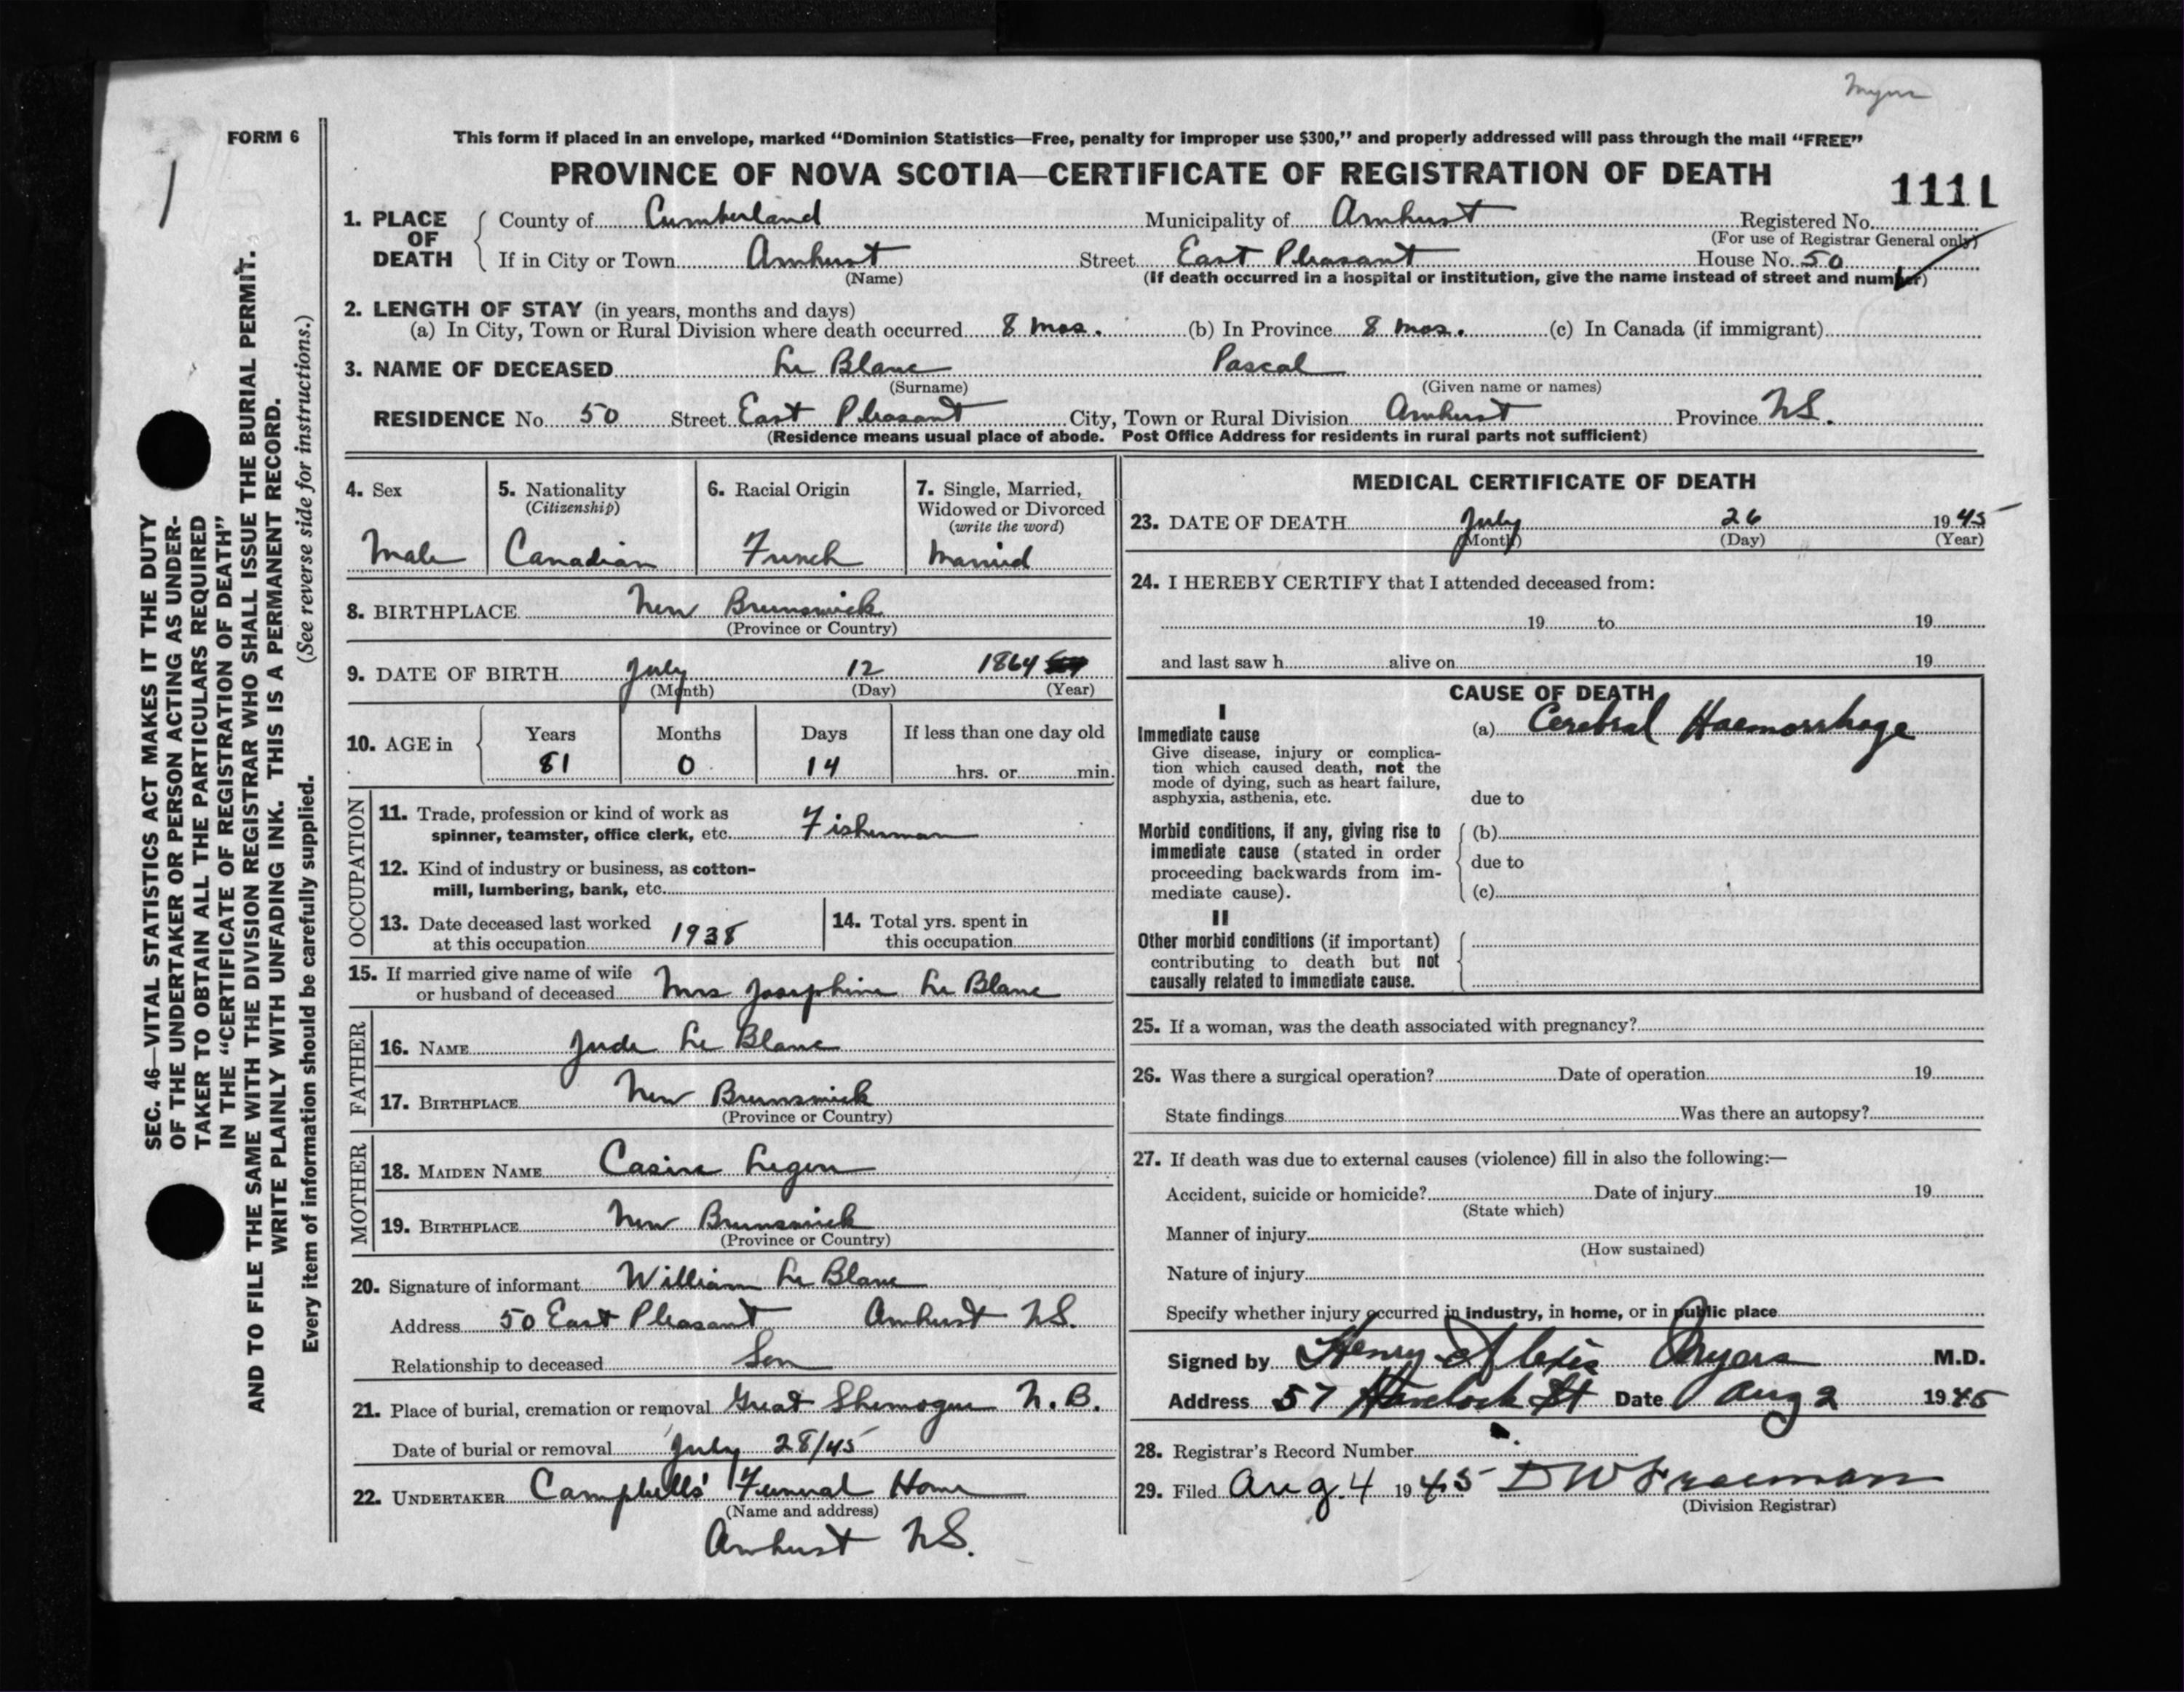 Myers
FORM 6
This form if placed in an envelope, marked “Dominion Statistics—Free, penalty for improper use $300,” and properly addressed will pass through the mail “FREE”
PROVINCE OF NOVA SCOTIA—CERTIFICATE OF REGISTRATION OF DEATH
1111
1. PLACE OF DEATH
County of Cumberland Municipality of Amherst Registered No.
(For use of Registrar General only)
If in City or Town Amherst Street East Pleasant House No. 50
(Name) (If death occurred in a hospital or institution, give the name instead of street and number)
2. LENGTH OF STAY (in years, months and days)
(a) In City, Town or Rural Division where death occurred 8 mos. (b) In Province 8 mos. (c) In Canada (if immigrant)
3. NAME OF DECEASED Le Blanc Pascal
(Surname) (Given name or names)
RESIDENCE No. 50 Street East Pleasant City, Town or Rural Division Amherst Province N.S.
(Residence means usual place of abode. Post Office Address for residents in rural parts not sufficient)
4. Sex
Male
5. Nationality
(Citizenship)
Canadian
6. Racial Origin
French
7. Single, Married,
Widowed or Divorced
(write the word)
Married
8. BIRTHPLACE New Brunswick
(Province or Country)
9. DATE OF BIRTH July 12 1864
(Month) (Day) (Year)
10. AGE in
Years Months Days If less than one day old
81 0 14 hrs. or min.
OCCUPATION
11. Trade, profession or kind of work as
spinner, teamster, office clerk, etc. Fisherman
12. Kind of industry or business, as cotton-
mill, lumbering, bank, etc.
13. Date deceased last worked
at this occupation 1938
14. Total yrs. spent in
this occupation
15. If married give name of wife
or husband of deceased Mrs Josephine Le Blanc
FATHER
16. NAME Jude Le Blanc
17. BIRTHPLACE New Brunswick
(Province or Country)
MOTHER
18. MAIDEN NAME
19. BIRTHPLACE New Brunswick
(Province or Country)
20. Signature of informant William Le Blanc
Address 50 East Pleasant Amherst N.S.
Relationship to deceased Son
21. Place of burial, cremation or removal Great Shemogue N.B.
Date of burial or removal July 28/45
22. UNDERTAKER Campbells' Funeral Home
(Name and address)
Amherst N.S.
MEDICAL CERTIFICATE OF DEATH
23. DATE OF DEATH July 26 1945
(Month) (Day) (Year)
24. I HEREBY CERTIFY that I attended deceased from:
19 to 19
and last saw h alive on 19
CAUSE OF DEATH
I
Immediate cause
Give disease, injury or complica-
tion which caused death, not the
mode of dying, such as heart failure,
asphyxia, asthenia, etc.
(a) Cerebral Haemorrhage
due to
Morbid conditions, if any, giving rise to
immediate cause (stated in order
proceeding backwards from im-
mediate cause).
(b)
due to
(c)
II
Other morbid conditions (if important)
contributing to death but not
causally related to immediate cause.
25. If a woman, was the death associated with pregnancy?
26. Was there a surgical operation? Date of operation 19
State findings Was there an autopsy?
27. If death was due to external causes (violence) fill in also the following:—
Accident, suicide or homicide? Date of injury 19
(State which)
Manner of injury
(How sustained)
Nature of injury
Specify whether injury occurred in industry, in home, or in public place
Signed by Henry Alexis Myers M.D.
Address 57 Havelock St Date Aug 2 1945
28. Registrar's Record Number
29. Filed Aug. 4 1945 D W Freeman
(Division Registrar)
SEC. 46—VITAL STATISTICS ACT MAKES IT THE DUTY
OF THE UNDERTAKER OR PERSON ACTING AS UNDER-
TAKER TO OBTAIN ALL THE PARTICULARS REQUIRED
IN THE “CERTIFICATE OF REGISTRATION OF DEATH”
AND TO FILE THE SAME WITH THE DIVISION REGISTRAR WHO SHALL ISSUE THE BURIAL PERMIT.
WRITE PLAINLY WITH UNFADING INK. THIS IS A PERMANENT RECORD.
Every item of information should be carefully supplied. (See reverse side for instructions.)